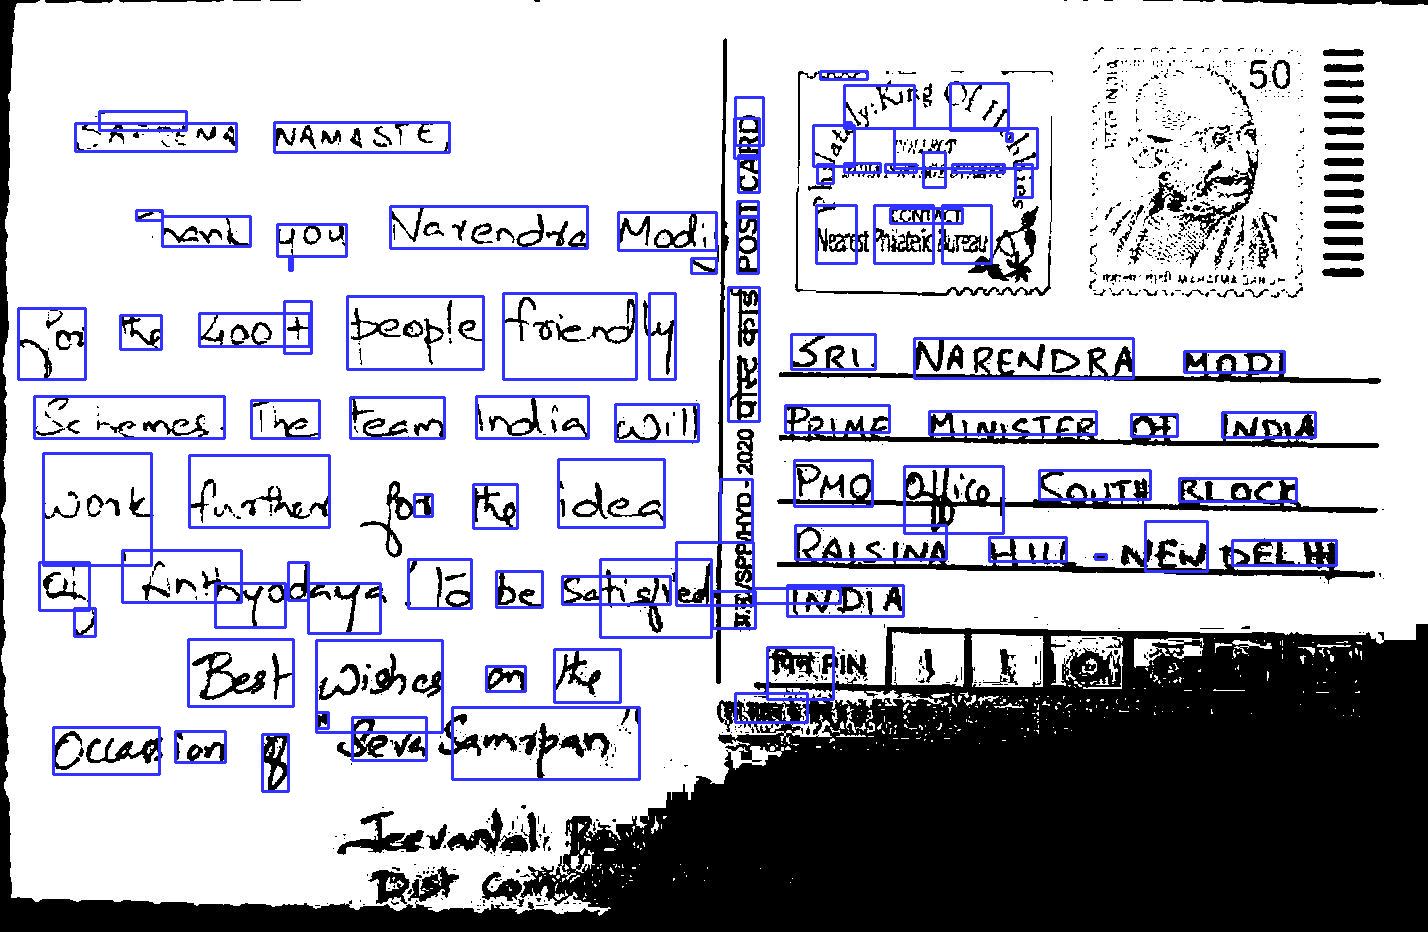 NAMASTE,
Thank you Narendra Modi,
for the 400+ people friendly
Schemes. The team India will
work further for the idea
of Anthyodaya To be Satisfied
Best wishes on the
Occassion of Seva Samrpan"
Dist
POST CARD
पोस्ट कार्ड
/SPP/HYD.-2020
Philately: King Of Hobbies
COLLECT
CONTACT
Nearest Philatelic Bureau
50
MAHATMA GANDHI
SRI. NARENDRA MODI
PRIME MINISTER OF INDIA
PMO Office SOUTH BLOCK
RAISINA HILL - NEW DELHI
INDIA
पिन PIN